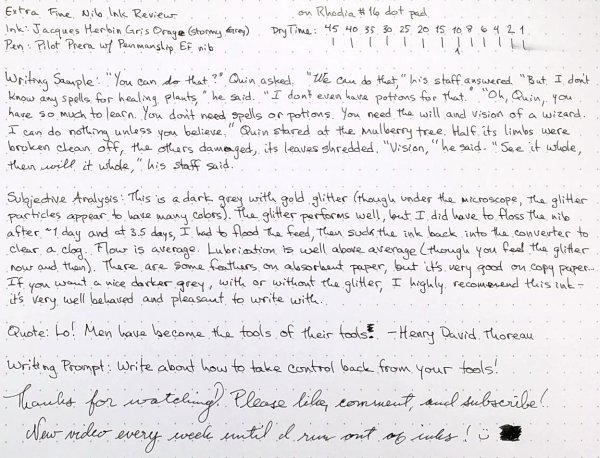 Extra Fine Nib Ink Review on Rhodia #16 dot pad
Ink: Jacques Herbin Gris Orage (Stormy Grey) Dry Time: 45 40 35 30 25 20 15 10 8 6 4 2 1
Pen: Pilot Prera w/ Penmanship EF nib
Writing Sample: "You can do that?" Quin asked. "We can do that," his staff answered. "But I don't
know any spells for healing plants," he said. "I don't even have potions for that." "Oh, Quin, you
have so much to learn. You don't need spells or potions. You need the will and vision of a wizard.
I can do nothing unless you believe." Quin stared at the mulberry tree. Half its limbs were
broken clean off, the others damaged, its leaves shredded. "Vision," he said. "See it whole,
then will it whole," his staff said.
Subjective Analysis: This is a dark grey with gold glitter (though under the microscope, the glitter
particles appear to have many colors). The glitter performs well, but I did have to floss the nib
after ~1 day and at 3.5 days, I had to flood the feed, then suck the ink back into the converter to
clear a clog. Flow is average. Lubrication is well above average (though you feel the glitter
now and then). There are some feathers on absorbent paper, but it's very good on copy paper...
If you want a nice darker grey, with or without the glitter, I highly recommend this ink –
it's very well behaved and pleasant to write with.
Quote: Lo! Men have become the tools of their tools. -Henry David Thoreau
Writing Prompt: Write about how to take control back from your tools!
Thanks for watching! Please like, comment, and subscribe!
New video every week until I run out of inks! :)